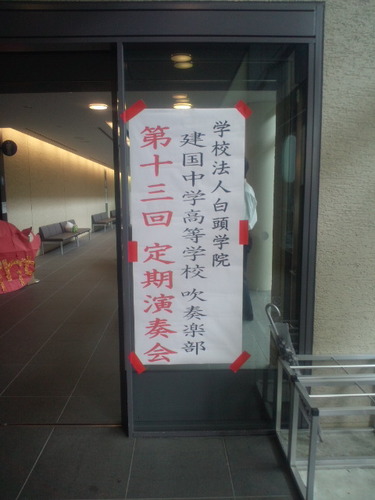 学校法人白頭学院
建国中学高等学校 吹奏楽部
第十三回 定期演奏会